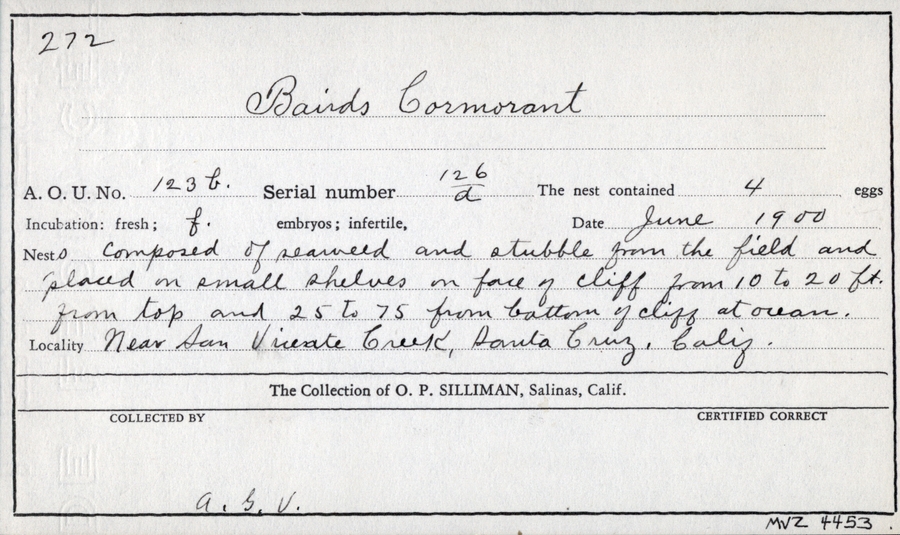 272
Bairds Cormorant
A. O. U. No. 123 b. Serial number 126/a The nest contained 4 eggs
Incubation: fresh; f. embryos; infertile, Date June 1900
Nests composed of seaweed and stubble from the field and
placed on small shelves on face of cliff from 10 to 20 ft.
from top and 25 to 75 from bottom of cliff at ocean.
Locality Near San Vicente Creek, Santa Cruz, Calif.
The Collection of O. P. SILLIMAN, Salinas, Calif.
COLLECTED BY CERTIFIED CORRECT
a. G. V.
MVZ 4453.